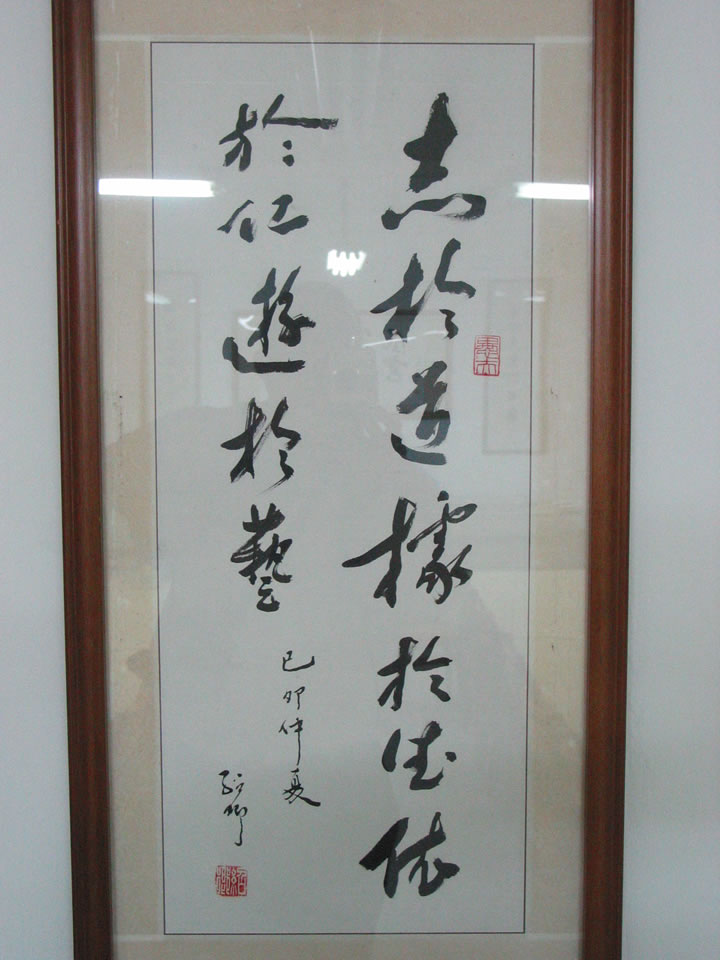 志於道據於德依
於仁遊於藝
己卯仲夏